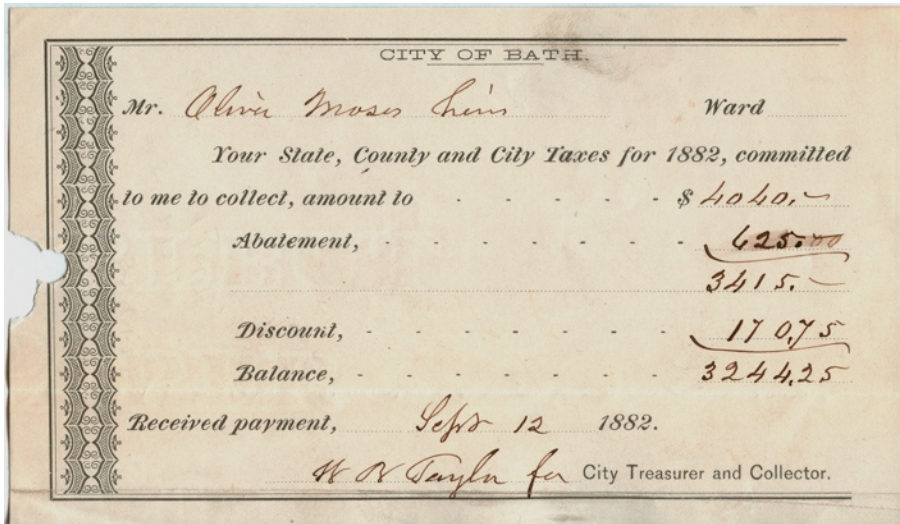 CITY OF BATH.
Mr. Oliver Moses Heirs Ward
Your State, County and City Taxes for 1882, committed
to me to collect, amount to - - - - - - $ 4040.-
Abatement, - - - - - - - - 625.00
3415.-
Discount, - - - - - - - 170,75
Balance, - - - - - - - 3244,25
Received payment, Sept 12 1882.
Taylor for City Treasurer and Collector.